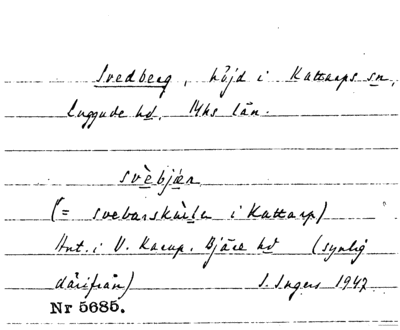 Svedberg, höjd i Kattarps sn,
Luggude hd, Mhs län.
svèbjær
(= svebarskùlen i Kattarp)
Ant. i V. Karup. Bjäre hd (synlig
därifrån) S. Ingers 1947
Nr 5685.